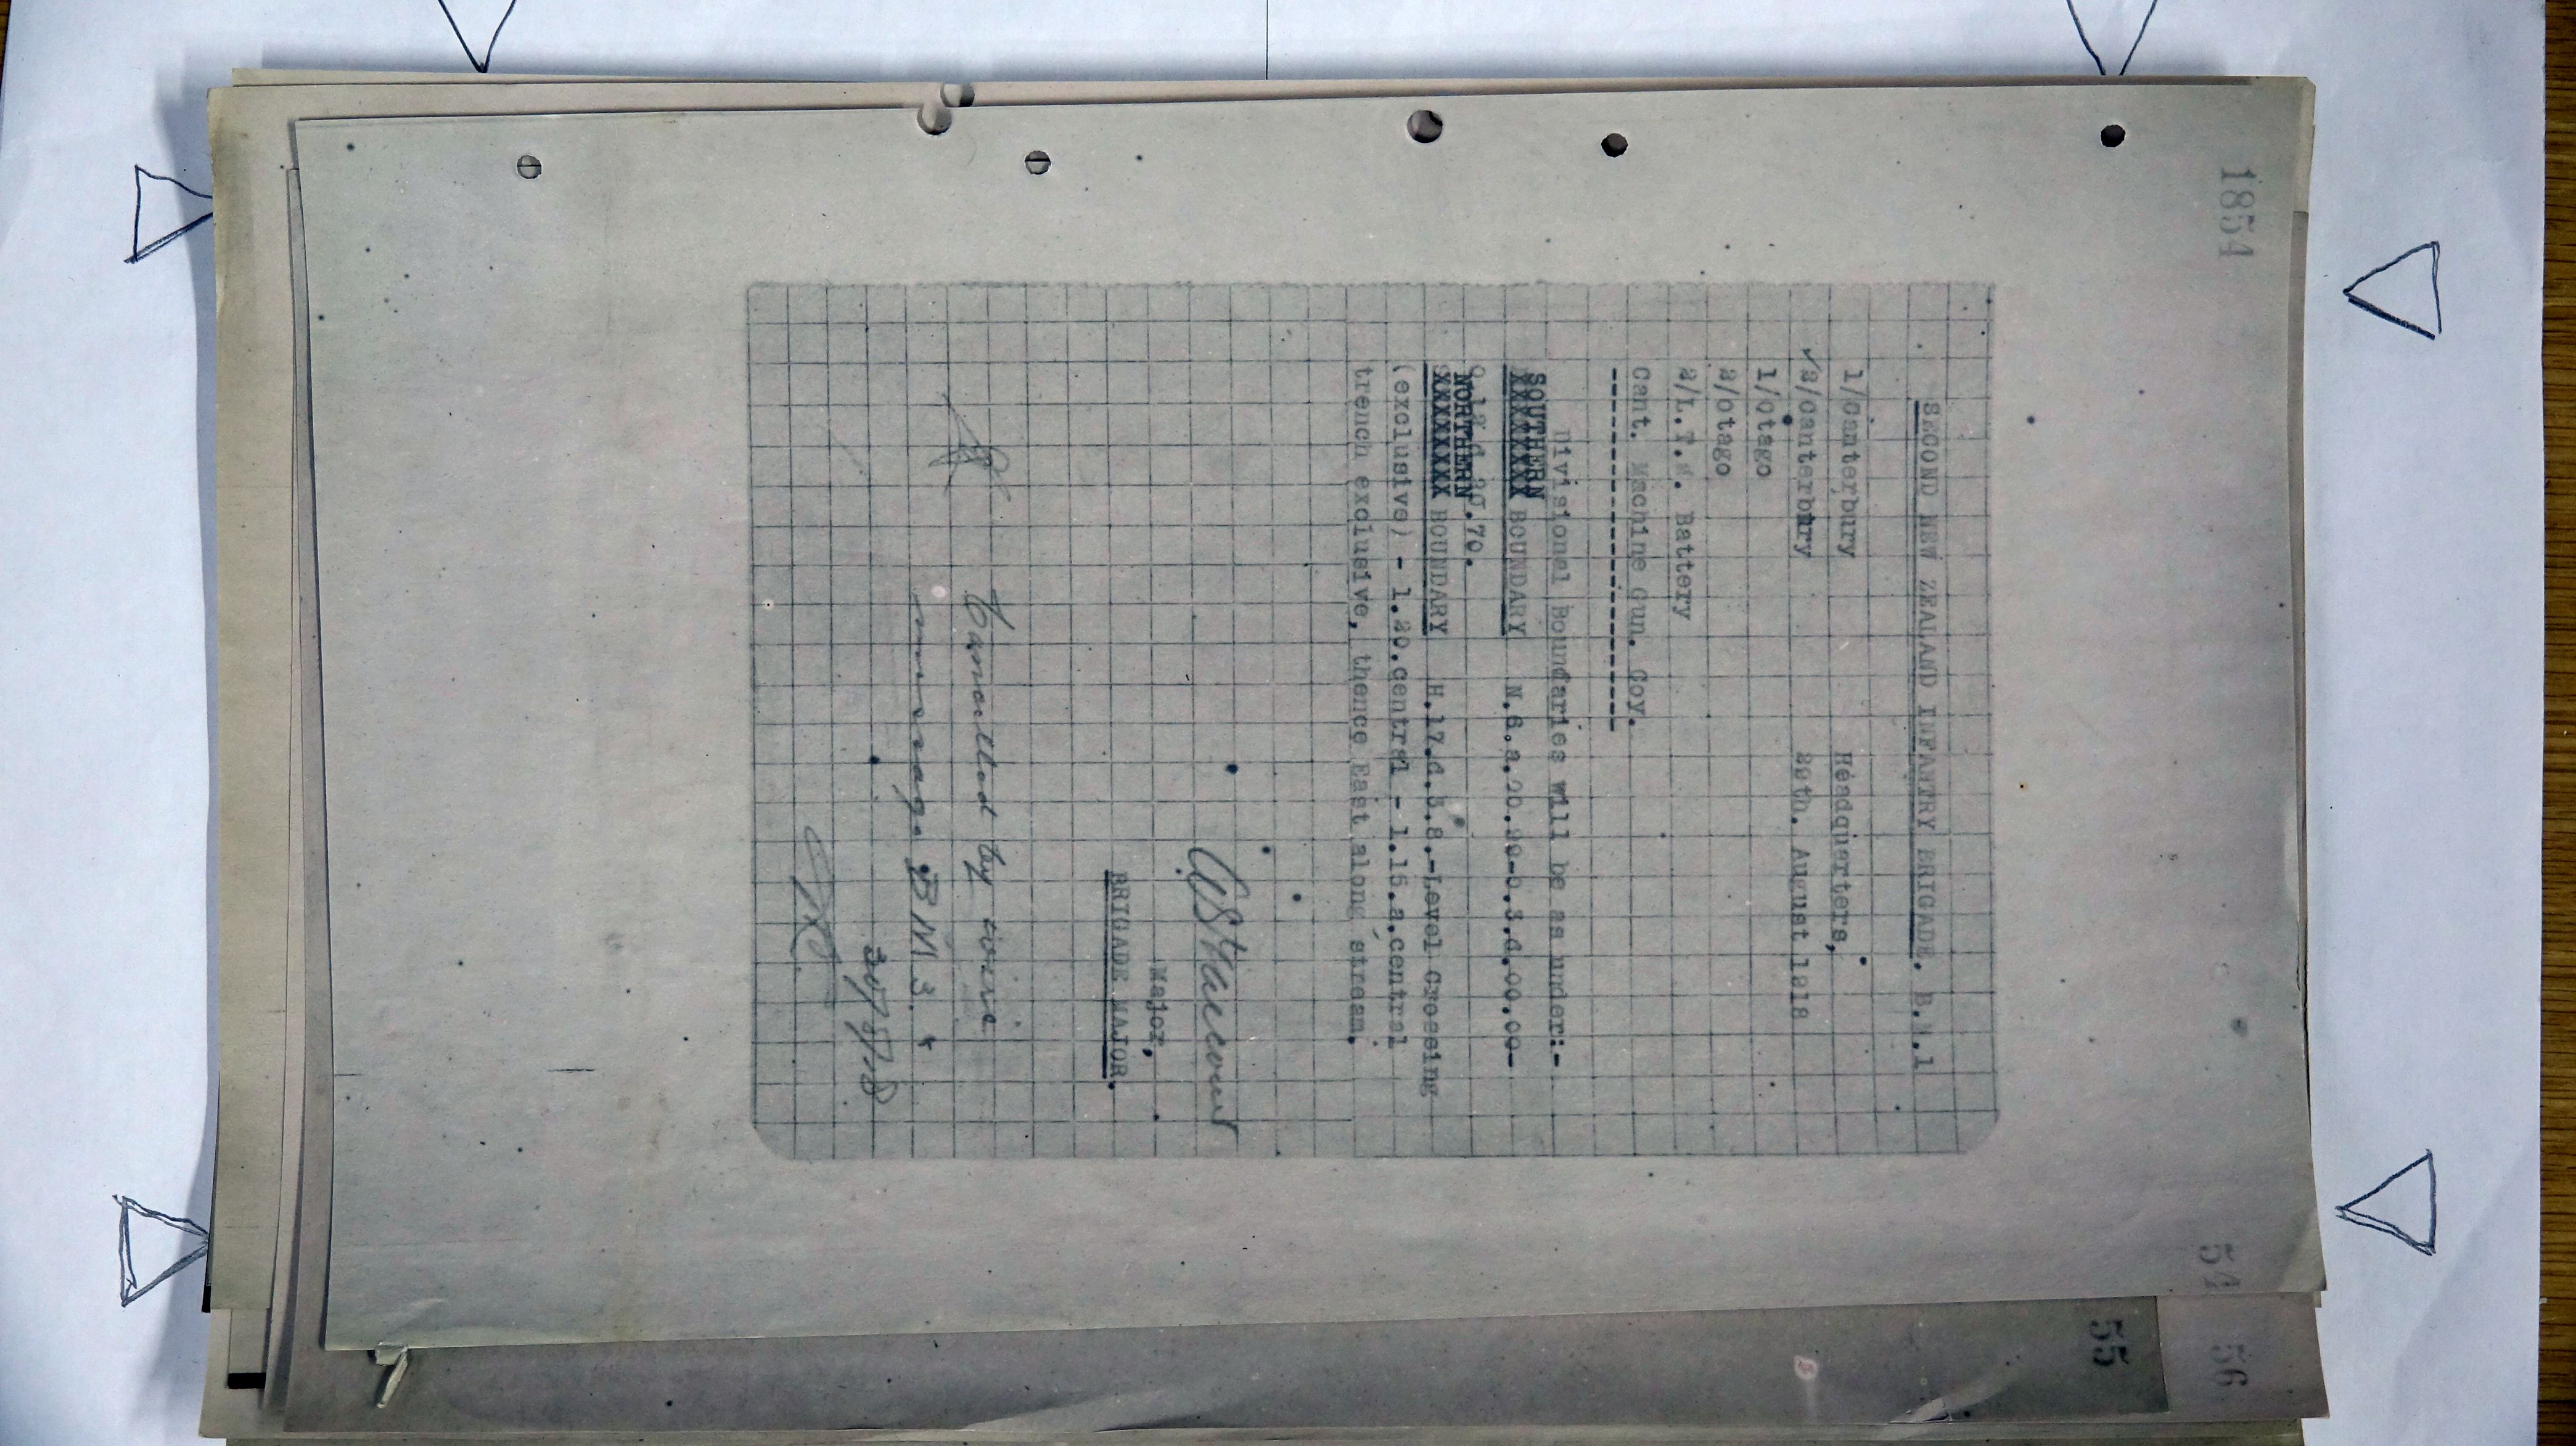 1854
SECOND NEW ZEALAND INFANTRY BRIGADE. B.M.1
1/Canterbury Headquarters,
✓2/Canterbury 29th. August 1918
1/Otago
2/Otago
2/L.T.M. Battery
Cant. Machine Gun. Coy.
--------------------------
Divisional Boundaries will be as under:-
SOUTHERN
XXXXXXXX BOUNDARY N.6.a.20.20-O.3.d.00.00-
70.
NORTHERN
XXXXXXXX BOUNDARY H.17.d.3.8.-Level Crossing
(exclusive) - I.20.central - I.15.a.central
trench exclusive, thence East along stream.
Major,
BRIGADE MAJOR.
Cancelled by wire
message BM 3.
30/8/18
54
55
56